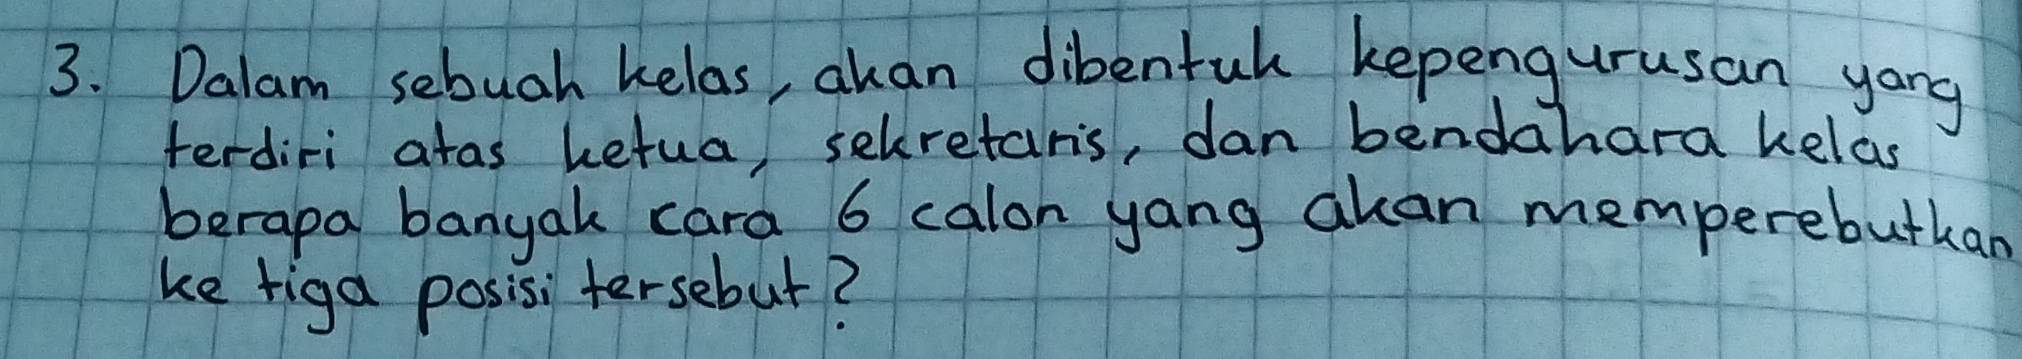 3. Dalam sebuah kelas, akan dibentuk kepengurusan yang
terdiri atas ketua, sekretaris, dan bendahara kelas
berapa banyak cara 6 calon yang akan memperebutkan
ke tiga posisi tersebut?